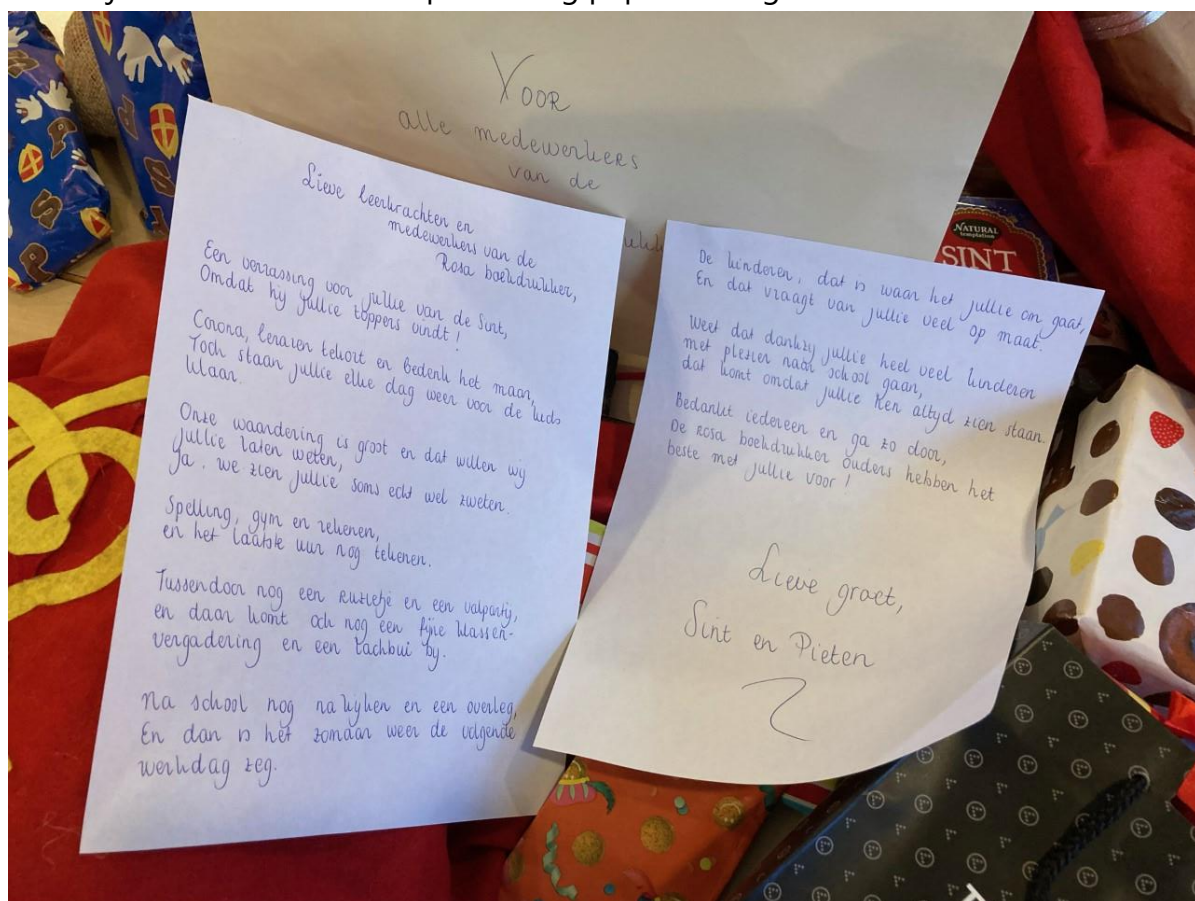 Voor
alle medewerkers
van de
Lieve leerkrachten en
medewerkers van de
Rosa boekdrukker,
Een verrassing voor jullie van de Sint,
Omdat hy jullie toppers vindt!
Corona, leraren tekort en bedenk het maar,
Toch staan jullie elke dag weer voor de kids
klaar.
Onze waardering is groot en dat willen wij
jullie laten weten,
Ja. we zien jullie soms echt wel zweten.
Spelling, gym en rekenen,
en het laatste uur nog tekenen.
Tussendoor nog een ruzietje en een valparty,
en daar komt ook nog een fijne klassen-
vergadering en een lachbui by.
Na school nog nakijken en een overleg,
En dan is het zomaar weer de volgende
werkdag zeg.
De kinderen, dat is waar het jullie om gaat,
En dat vraagt van jullie veel op maat.
Weet dat dankzy jullie heel veel kinderen
met plezier naar school gaan,
dat komt omdat jullie hen altyd zien staan.
Bedankt iedereen en ga zo door,
De Rosa boekdrukker ouders hebben het
beste met jullie voor!
Lieve groet,
Sint en Pieten
NATURAL
temptation
SINT